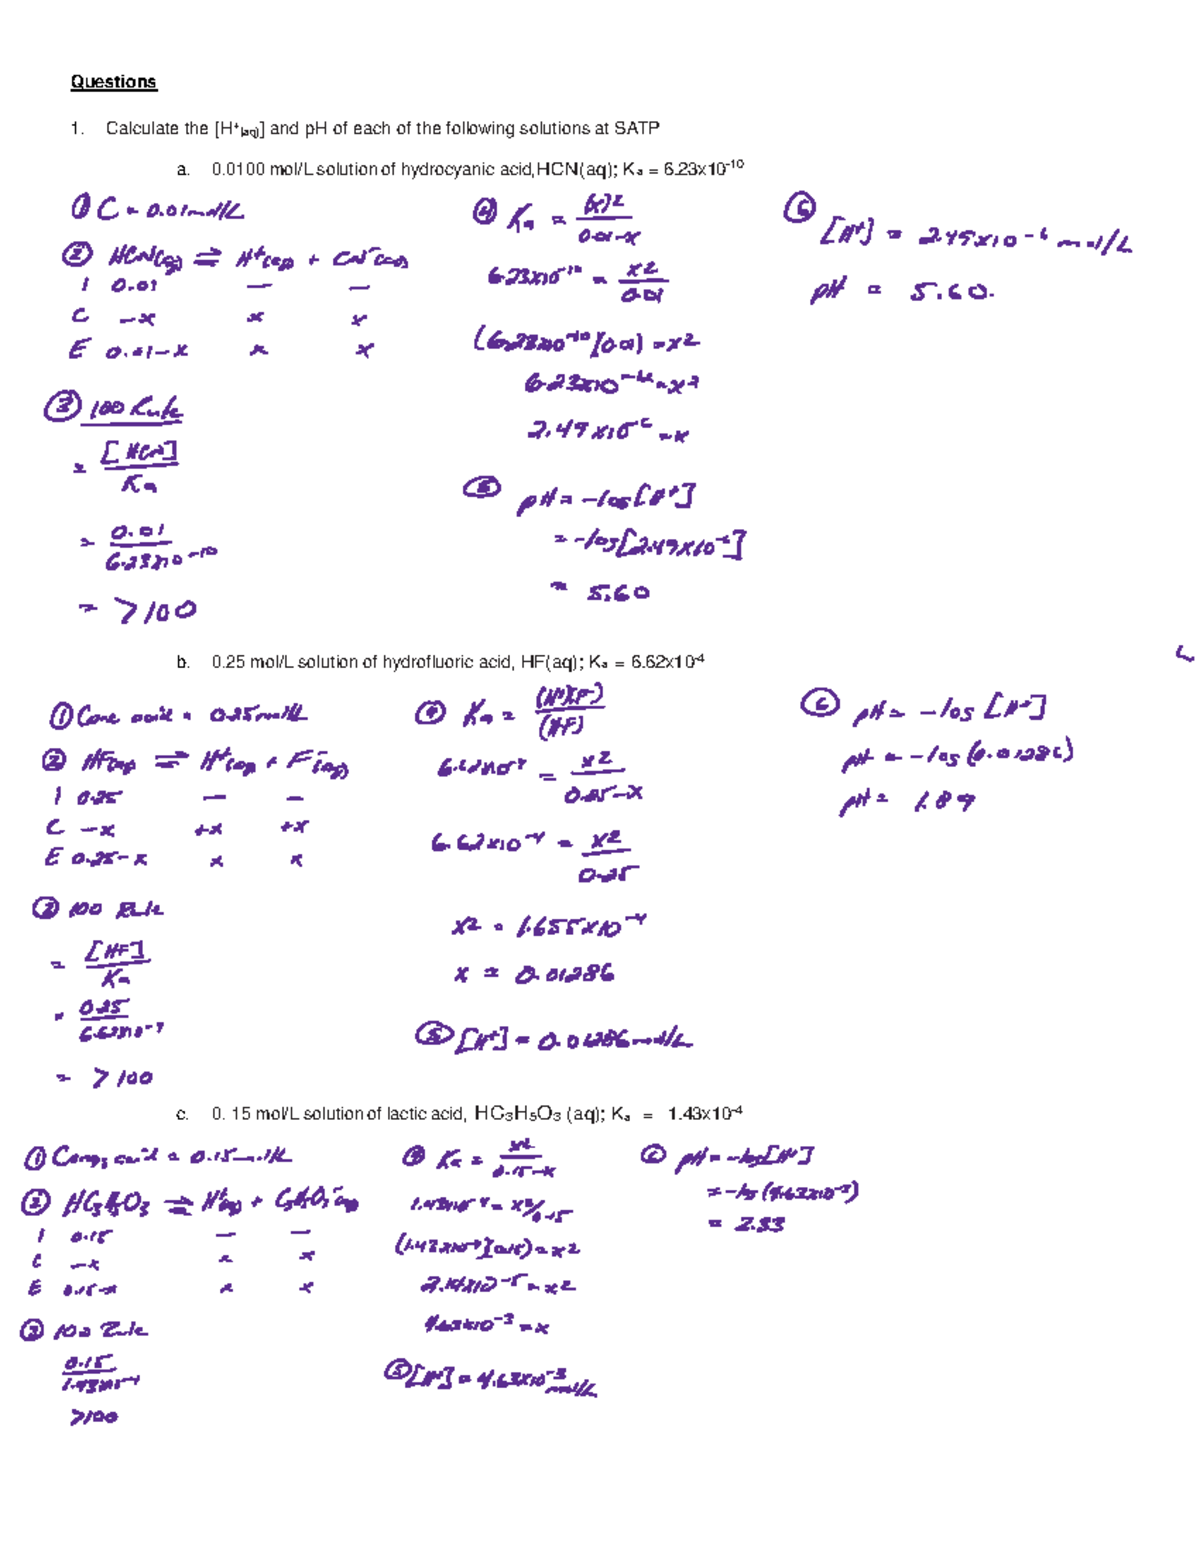 Questions
1. Calculate the [H⁺(aq)] and pH of each of the following solutions at SATP
a. 0.0100 mol/L solution of hydrocyanic acid,HCN(aq); Kₐ = 6.23x10⁻¹⁰
① C = 0.01 mol/L
② HCN(aq) ⇌ H⁺(aq) + CN⁻(aq)
I 0.01 — —
C -x x x
E 0.01-x x x
③ 100 Rule
= [HCN]
Ka
= 0.01
6.23x10⁻¹⁰
= >100
④ Ka = (x)2
0.01-x
6.23x10⁻¹⁰ = x2
0.01
(6.23x10⁻¹⁰)(0.01) = x2
6.23x10⁻¹² = x2
2.49x10⁻⁶ = x
⑤ pH = -log[H⁺]
= -log[2.49x10⁻⁶]
= 5.60
⑥ [H⁺] = 2.49x10⁻⁶ mol/L
pH = 5.60.
b. 0.25 mol/L solution of hydrofluoric acid, HF(aq); Kₐ = 6.62x10⁻⁴
① Conc acid = 0.25 mol/L
② HF(aq) ⇌ H⁺(aq) + F⁻(aq)
I 0.25 — —
C -x +x +x
E 0.25-x x x
③ 100 Rule
= [HF]
Ka
= 0.25
6.62x10⁻⁴
= >100
④ Ka = (H⁺)(F⁻)
(HF)
6.62x10⁻⁴ = x2
0.25-x
6.62x10⁻⁴ = x2
0.25
x2 = 1.655x10⁻⁴
x = 0.01286
⑤ [H⁺] = 0.01286 mol/L
⑥ pH = -log[H⁺]
pH = -log(0.01286)
pH = 1.89
c. 0. 15 mol/L solution of lactic acid, HC₃H₅O₃ (aq); Kₐ = 1.43x10⁻⁴
① Conc, acid = 0.15 mol/L
② HC₃H₅O₃ ⇌ H⁺(aq) + C₃H₅O₃⁻(aq)
I 0.15 — —
C -x x x
E 0.15-x x x
③ 100 Rule
0.15
1.43x10⁻⁴
>100
④ Ka = x2
0.15-x
1.43x10⁻⁴ = x2/0.15
(1.43x10⁻⁴)(0.15) = x2
2.14x10⁻⁵ = x2
4.63x10⁻³ = x
⑤ [H⁺] = 4.63x10⁻³ mol/L
⑥ pH = -log[H⁺]
= -log(4.63x10⁻³)
= 2.33